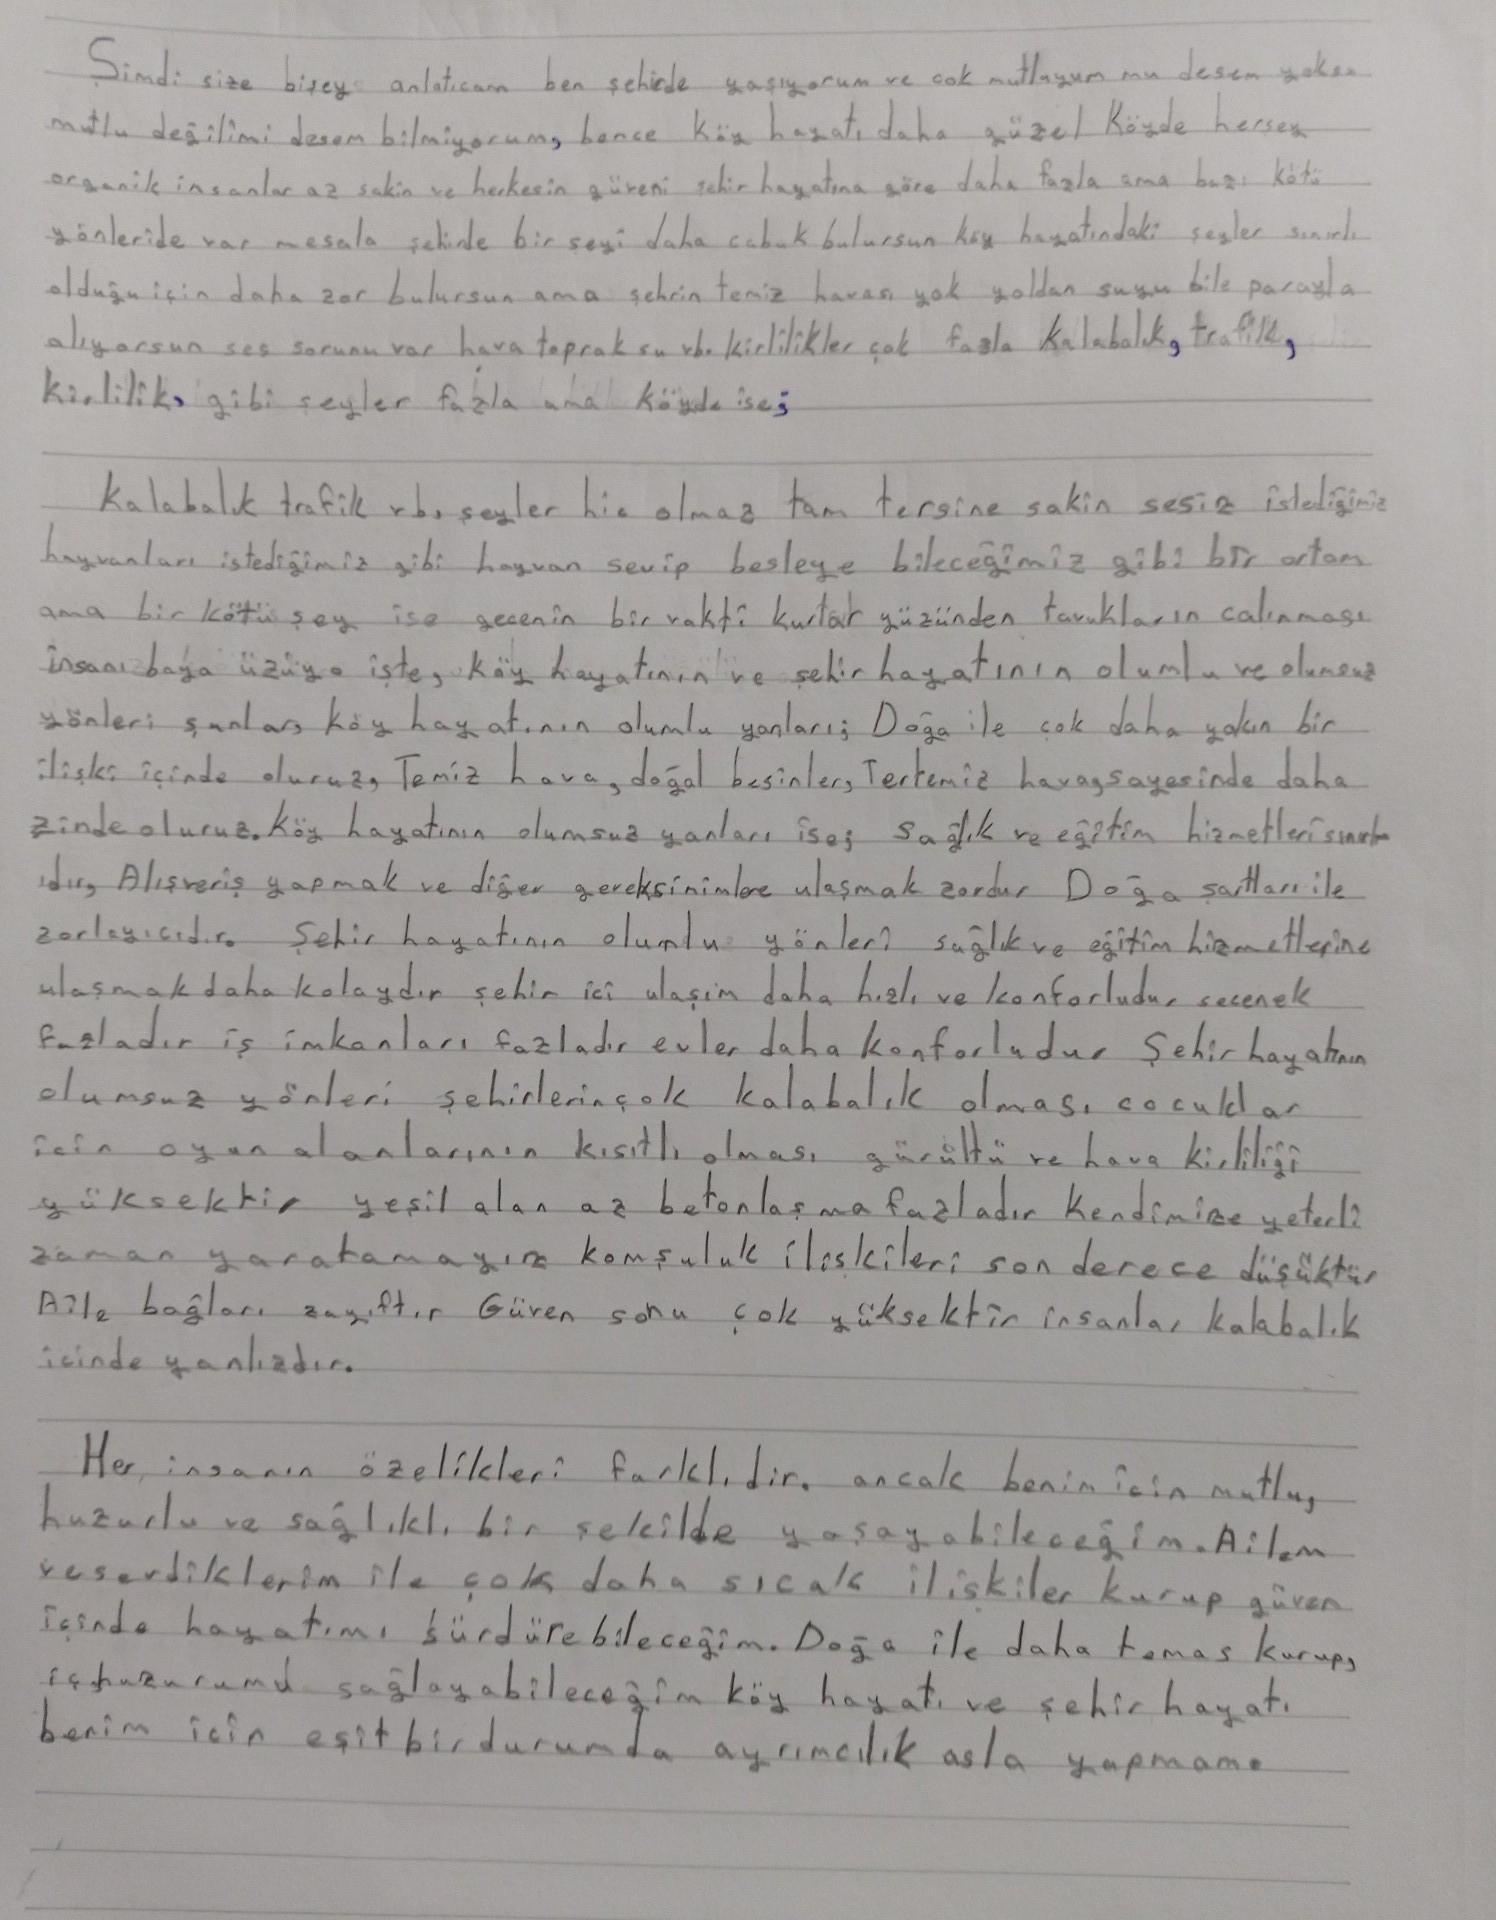 Şimdi size bişey anlatıcam ben şehirde yaşıyorum ve cok mutluyum mu desem yoksa
mutlu değilimi desem bilmiyorum, bence köy hayatı daha güzel Köyde hersey
organik insanlar az sakin ve herkesin güveni şehir hayatına göre daha fazla ama bazı kötü
yönleride var mesala şehirde bir seyi daha cabuk bulursun köy hayatındaki seyler sınırlı
olduğu için daha zor bulursun ama şehrin temiz havası yok yoldan suyu bile parayla
alıyorsun ses sorunu var hava toprak su vb. kirlilikler çok fazla kalabalık, trafik,
kirlilik, gibi seyler fazla ama köyde ise;
Kalabalık trafik vb. şeyler hic olmaz tam tersine sakin sesiz istediğimiz
hayvanları istediğimiz gibi hayvan sevip besleye bileceğimiz gibi bir ortam
ama bir kötü şey ise gecenin bir vakti kurtlar yüzünden tavukların calınması
insanı baya üzüyo işte, köy hayatının ve şehir hayatının olumlu ve olumsuz
yönleri şunlar, köy hayatının olumlu yanları; Doğa ile çok daha yakın bir
ilişki içinde oluruz, Temiz hava, doğal besinler, Tertemiz hava, sayesinde daha
zinde oluruz. Köy hayatının olumsuz yanları ise; Sağlık ve eğitim hizmetleri sınırlı
ıdır, Alışveriş yapmak ve diğer gereksinimlere ulaşmak zordur Doğa şartları ile
zorlayıcıdır. Şehir hayatının olumlu yönleri sağlık ve eğitim hizmetlerine
ulaşmak daha kolaydır şehir ici ulaşim daha hızlı ve konforludur secenek
fazladır iş imkanları fazladır evler daha konforludur Şehir hayatının
olumsuz yönleri şehirlerin çok kalabalık olması cocuklar
icin oyun alanlarının kısıtlı olması gürültü ve hava kirliliği
yüksektir yeşil alan az betonlaşma fazladır kendimize yeterli
zaman yaratamayız komşuluk ilişkileri son derece düşüktür
Aile bağları zayıftır Güven sonu çok yüksektir insanlar kalabalık
icinde yanlızdır.
Her insanın özelikleri farklıdir. ancak benim icin mutlu,
huzurlu ve sağlıklı bir şekilde yaşayabileceğim. Ailem
ve serdiklerim ile çok daha sıcak ilişkiler kurup güven
içinde hayatımı sürdürebileceğim. Doğa ile daha temas kurup,
iç huzurumu sağlayabileceğim köy hayatı ve şehir hayatı
benim icin eşit bir durumda ayrımcılık asla yapmam.